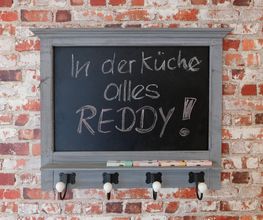 In der küche
alles
REDDY!